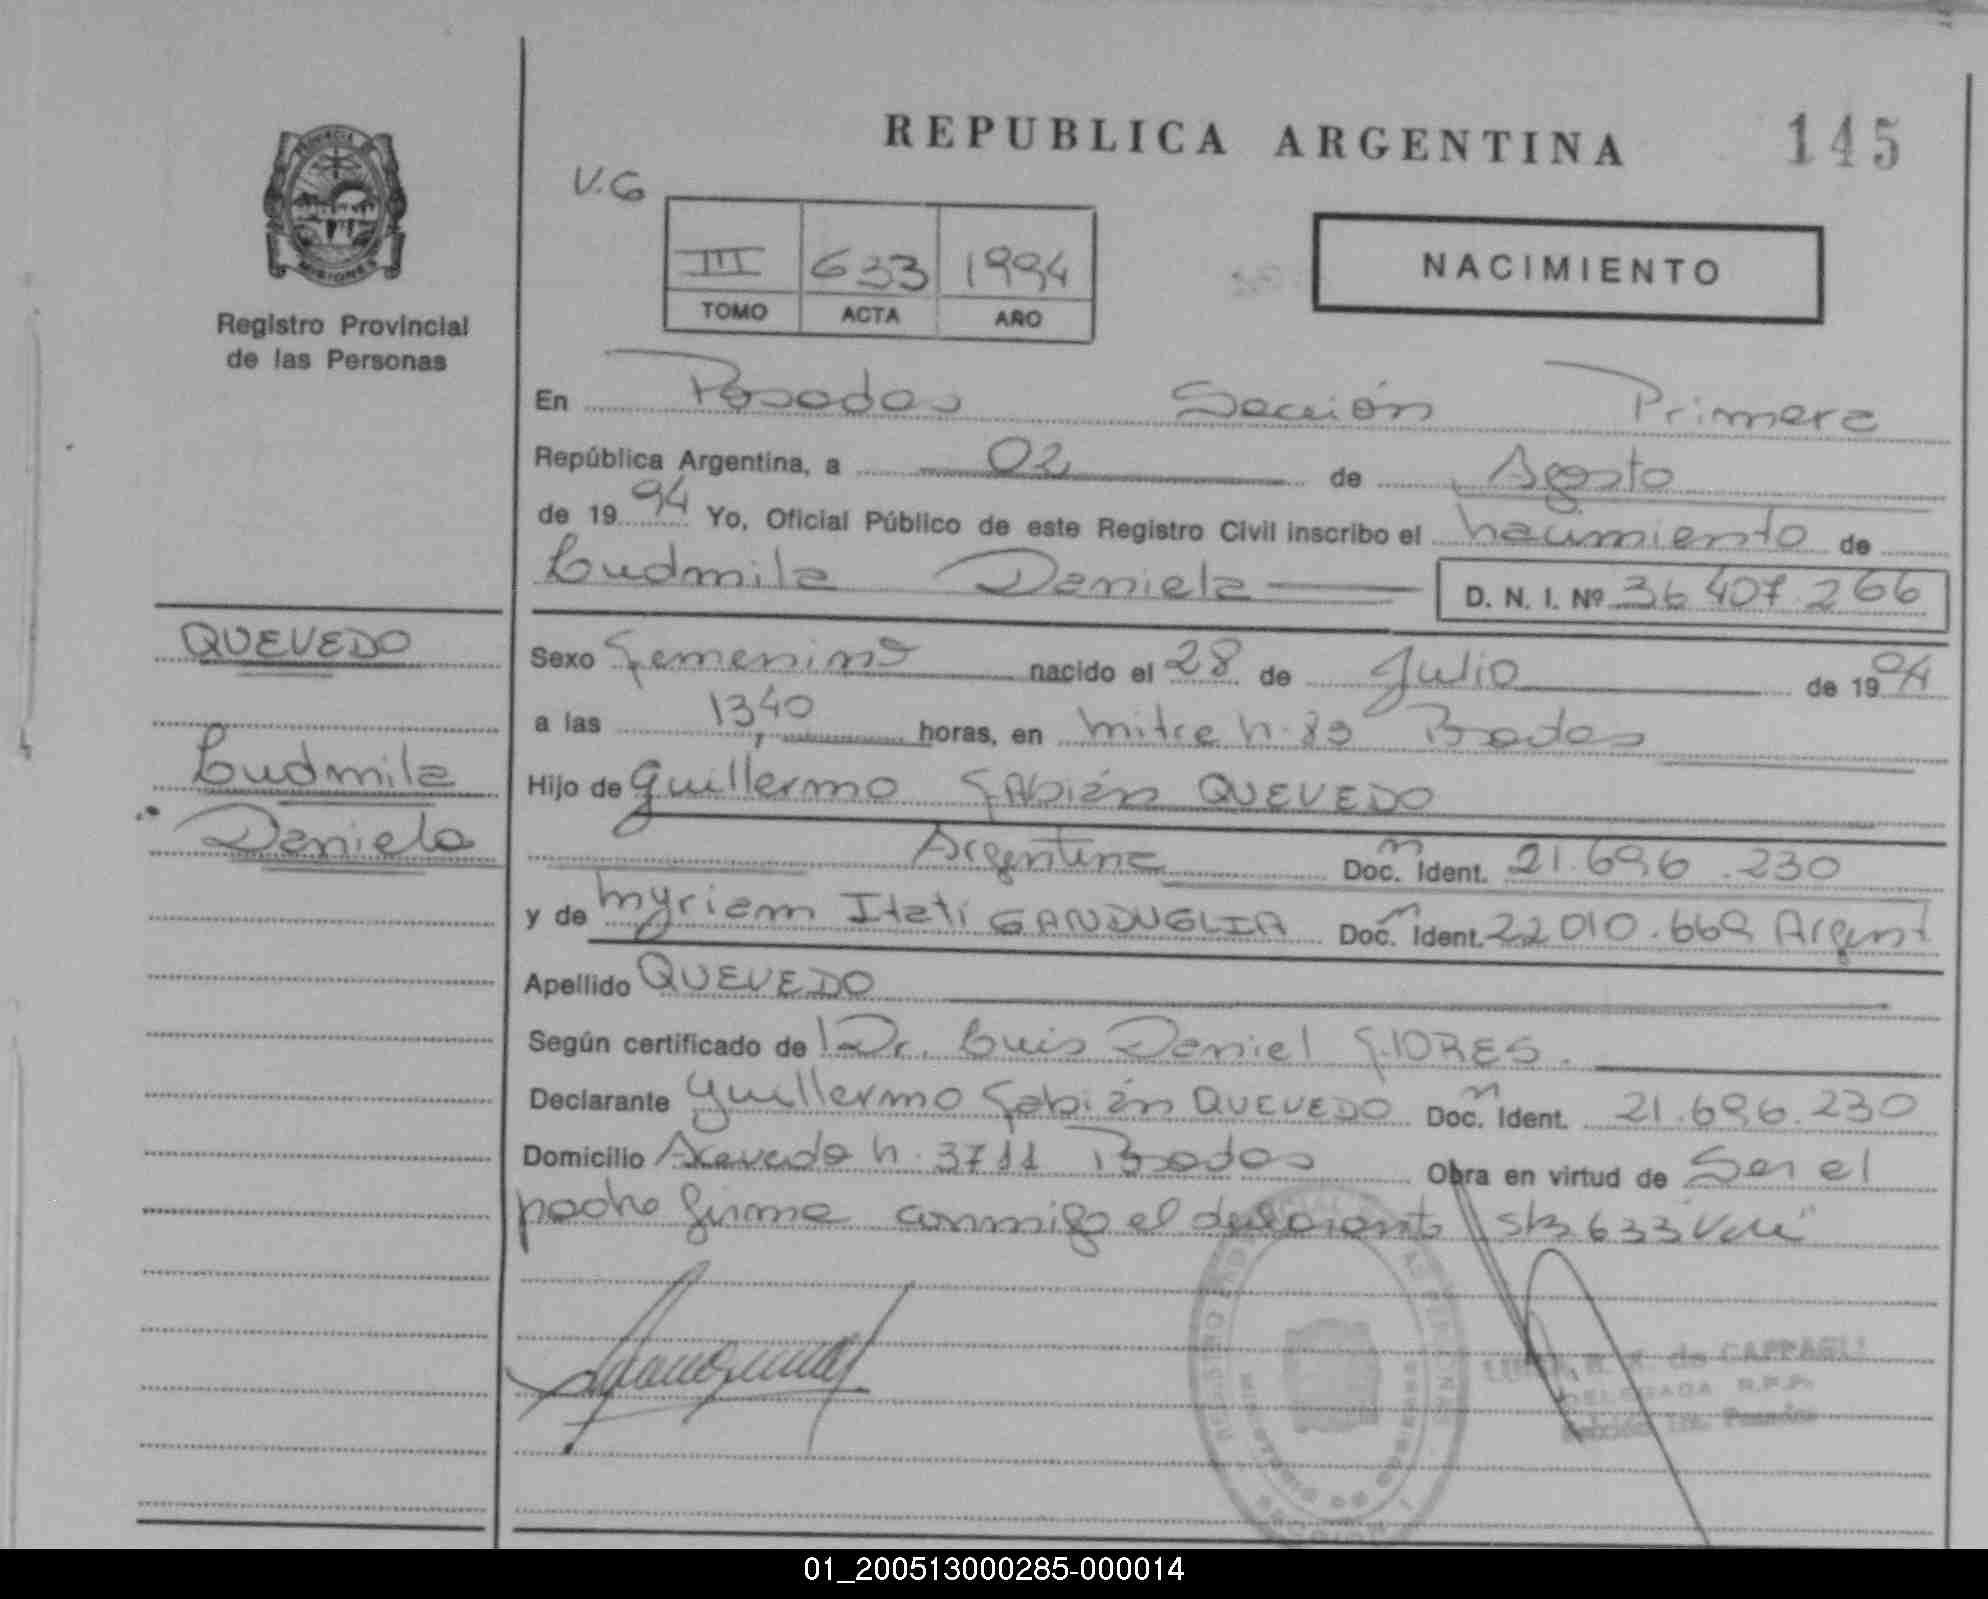 REPUBLICA ARGENTINA
145
PROVINCIA DE
MISIONES
Registro Provincial
de las Personas
V.G
III 633 1994
TOMO ACTA AÑO
NACIMIENTO
En Posadas Sección Primera
República Argentina, a 02 de Agosto
de 1994 Yo, Oficial Público de este Registro Civil inscribo el nacimiento de
Ludmila Daniela D. N. I. Nº 36 407.266
QUEVEDO
Ludmila
Daniela
Sexo Femenino nacido el 28 de Julio de 1994
a las 13,40 horas, en Mitre n. 89 Posadas
Hijo de Guillermo Fabián QUEVEDO
Argentina Doc. n Ident. 21.696.230
y de Myriam Itatí GANDUGLIA Doc. n Ident. 22 010.669 Argent
Apellido QUEVEDO
Según certificado de Dr. Luis Daniel FLORES.
Declarante Guillermo Fabián QUEVEDO Doc. n Ident. 21.696.230
Domicilio Acevedo n. 3711 Posadas Obra en virtud de Ser el
padre firma conmigo el declarante S/B 633 Vale"
de CAPPAGLI
DELEGADA R.P.P.
Sección 1ra. Posadas
REGISTRO PROVINCIAL DE LAS PERSONAS
MINISTERIO DE GOBIERNO
SECCION 1
01_200513000285-000014